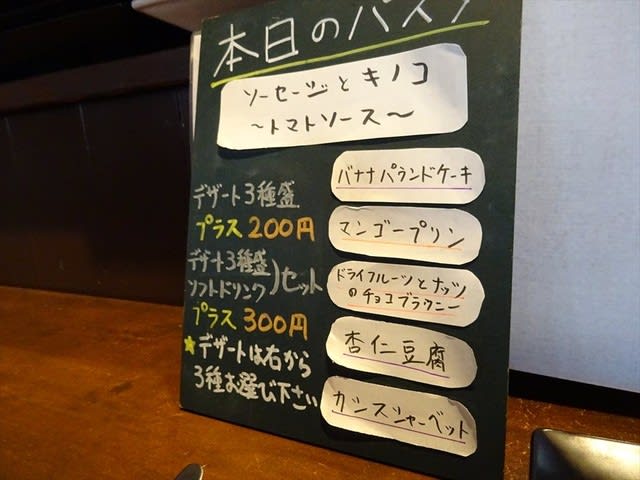 本日のパスタ
ソーセージとキノコ
〜トマトソース〜
デザート3種盛
プラス200円
デザート3種盛
ソフトドリンク)セット
プラス300円
★デザートは右から
3種お選び下さい
バナナパウンドケーキ
マンゴープリン
ドライフルーツとナッツ
のチョコブラウニー
杏仁豆腐
カシスシャーベット